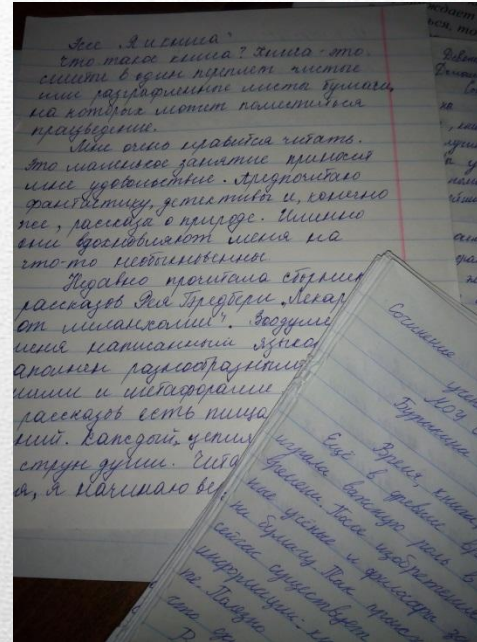 Эссе "Я и книга"
Что такое книга? Книга - это
сшитые в один переплет чистые
или разграфленные листы бумаги,
на которых может поместиться
працведение.
Мне очень нравится читать.
Это маленькое занятие приносит
мне удовольствие. Предпочитаю
фантастику, детективы и, конечно
же, рассказы о природе. Именно
они вдохновляют меня на
что-то необыкновенны
Недавно прочитала сборник
рассказов Рэя Бредбери „Лекар
от миланхолии". Воодуше
меня написанным языко
аполнен разнообразными
ими и метафорами
рассказов есть пища
ний. Каждый, цепля
струн души. Чита
я, я начинаю ве
Сочинение
учени
МОУ
Бурыкина
Время, книга,
Ещё в древни вр
играла важную роль в
времени. После изобретени
ные учёные и философы
на бумагу. Так проис
сейчас существует
информации:
те. Полезно
что